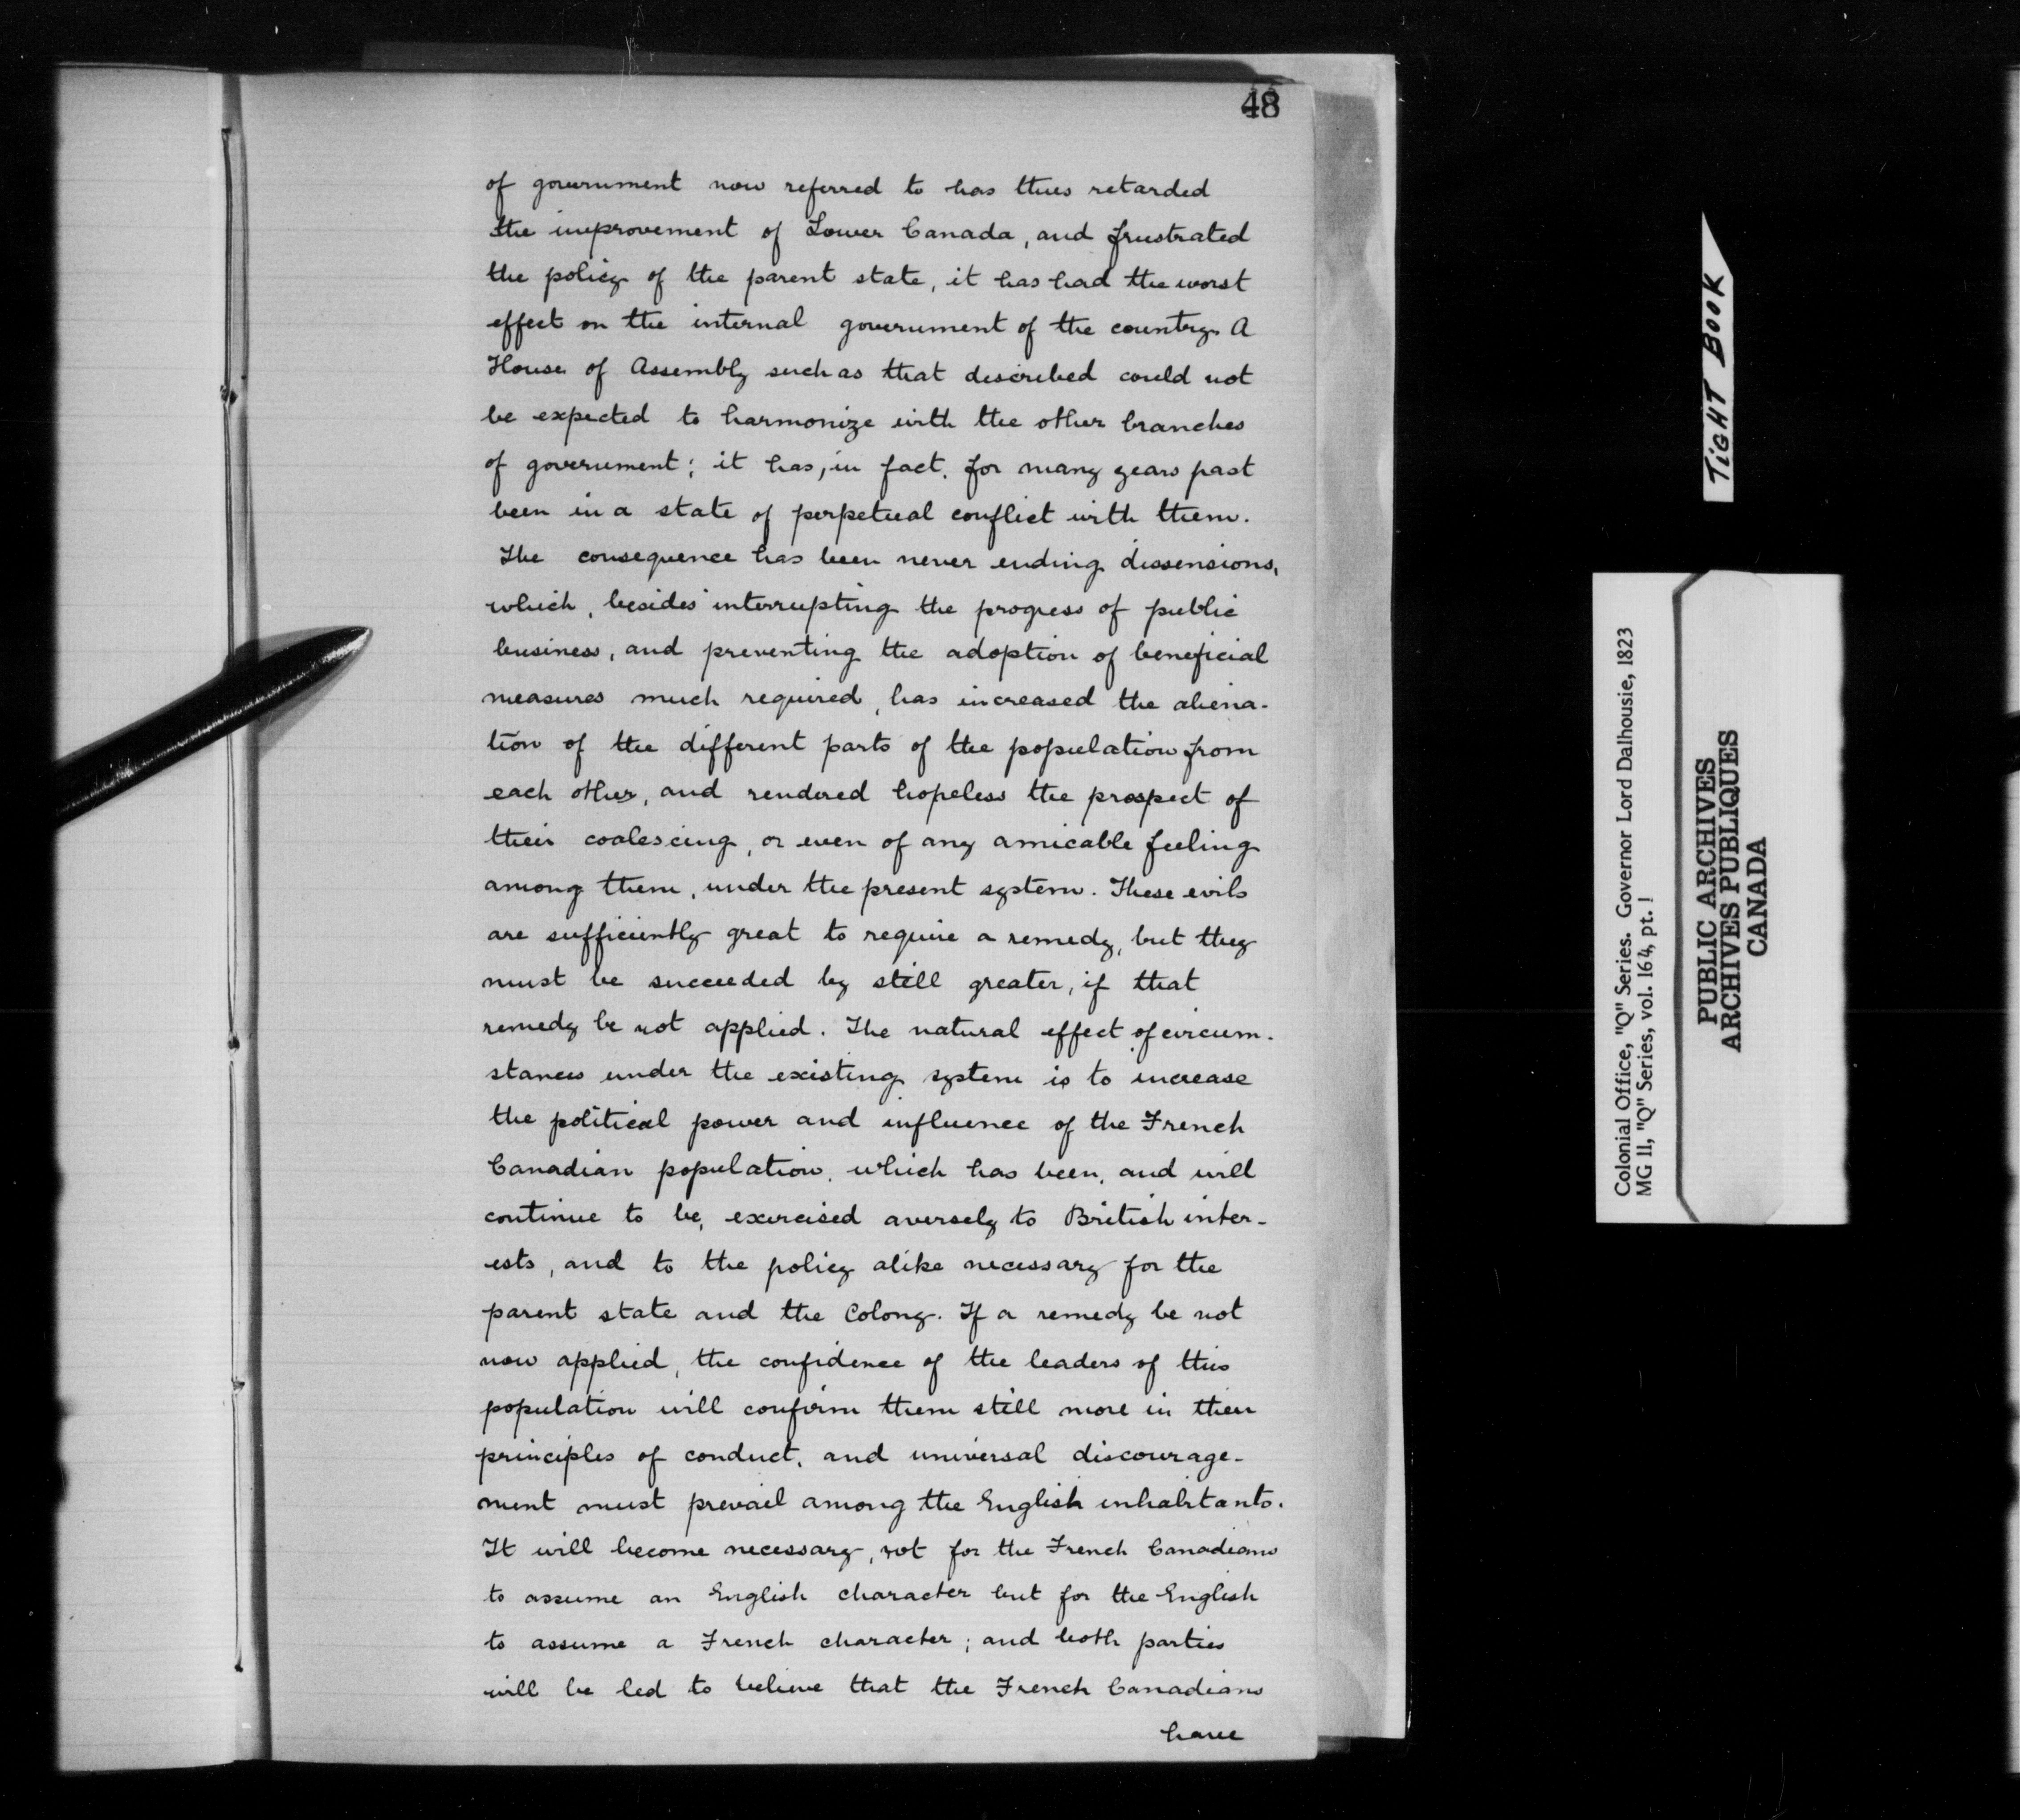 48
of government now referred to has thus retarded
the improvement of Lower Canada, and frustrated
the policy of the parent state, it has had the worst
effect on the internal government of the country. A
House of Assembly such as that described could not
be expected to harmonize with the other branches
of government; it has, in fact, for many years past
been in a state of perpetual conflict with them.
The consequence has been never ending dissensions,
which, besides interrupting the progress of public
business, and preventing the adoption of beneficial
measures much required, has increased the aliena-
tion of the different parts of the population from
each other, and rendered hopeless the prospect of
their coalescing, or even of any amicable feeling
among them, under the present system. These evils
are sufficiently great to require a remedy, but they
must be succeeded by still greater, if that
remedy be not applied. The natural effect of circum-
stances under the existing system is to increase
the political power and influence of the French
Canadian population, which has been, and will
continue to be, exercised aversely to British inter-
ests, and to the policy alike necessary for the
parent state and the Colony. If a remedy be not
now applied, the confidence of the leaders of this
population will confirm them still more in their
principles of conduct, and universal discourage-
ment must prevail among the English inhabitants.
It will become necessary, not for the French Canadians
to assume an English character but for the English
to assume a French character; and both parties
will be led to believe that the French Canadians
have
TIGHT BOOK
Colonial Office, "Q" Series. Governor Lord Dalhousie, 1823
MG 11, "Q" Series, vol. 164, pt. 1
PUBLIC ARCHIVES
ARCHIVES PUBLIQUES
CANADA